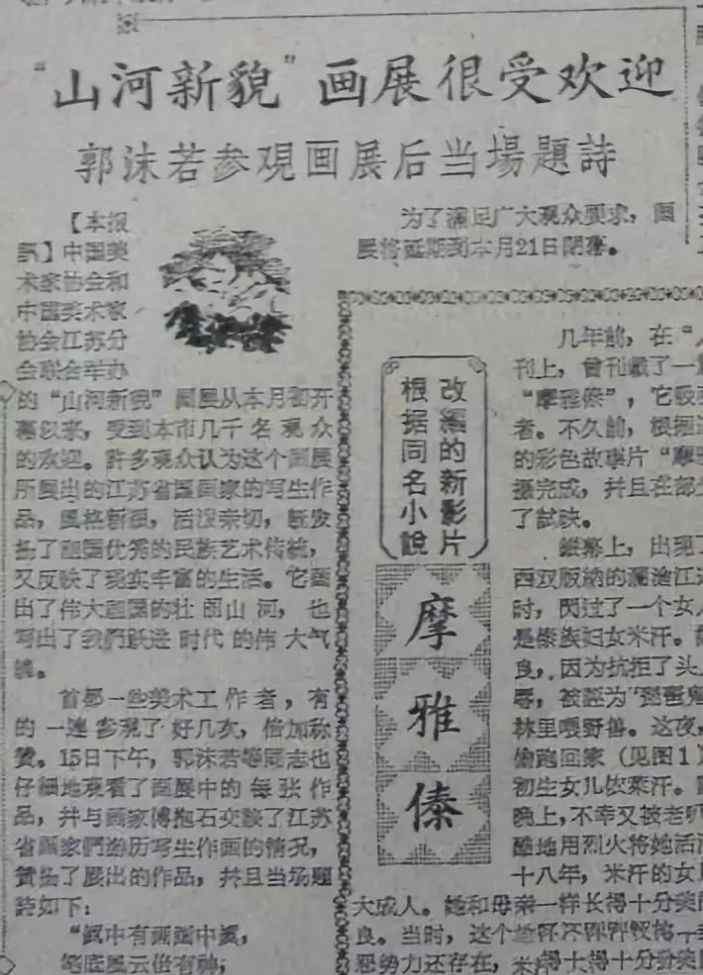 “山河新貌”画展很受欢迎
郭沫若参观画展后当場題詩
【本报
訊】中国美
术家协会和
中国美术家
协会江苏分
会联合举办
的“山河新貌”画展从本月初开
幕以来，受到本市几千名观众
的欢迎。許多观众认为这个画展
所展出的江苏省国画家的写生作
品，風格新穎，活泼亲切，既发
扬了祖国优秀的民族艺术传統，
又反映了现实丰富的生活。它画
出了伟大祖国的壮丽山河，也
写出了我們跃进时代的伟大气
魄。
首都一些美术工作者，有
的一連参观了好几次，倍加称
贊。15日下午，郭沫若等同志也
仔細地观看了画展中的每张作
品，并与画家傅抱石交談了江苏
省画家們游历写生作画的情况，
贊扬了展出的作品，并且当场題
詩如下：
“真中有画画中真，
笔底風云倍有神；
为了滿足广大观众要求，画
展将延期到本月21日閉幕。
根据同名小說
改編的新影片
摩雅傣
几年前，在“人
刊上，曾刊載了一
“摩雅傣”，它
者。不久前，根据
的彩色故事片“摩
摄完成，并且在部
了試映。
銀幕上，出现了
西双版納的瀾滄江
时，閃过了一个女
是傣族妇女米汗。
良，因为抗拒了头
辱，被誣为“琵琶鬼
林里喂野兽。这夜，
偷跑回家（见图1）
初生女儿依萊汗。
晚上，不幸又被老叭
酷地用烈火将她活
十八年，米汗的女
大成人。她和母亲一样长得十分美
良。当时，这个
恶势力还存在，